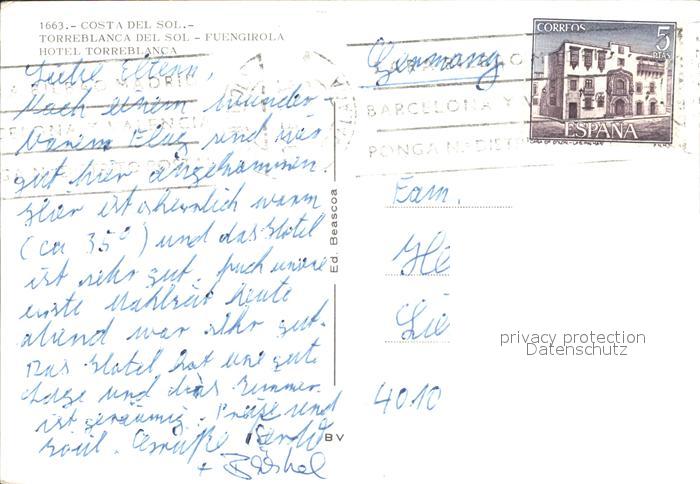 1663.- COSTA DEL SOL.-
TORREBLANCA DEL SOL - FUENGIROLA
HOTEL TORREBLANCA
Liebe Eltern,
Nach einem wunder-
baren Flug sind wir
gut hier angekommen.
Hier ist es ziemlich warm
(ca 35°) und das Hotel
ist sehr gut. Auch unsere
erste Mahlzeit heute
abend war sehr gut.
Das Hotel hat eine gute
Lage und das Zimmer
ist geräumig. Grüße und
Grüße
+
Ed. Beascoa
BV
Germany
CORREOS 5
PTAS
ESPAÑA
BARCELONA Y V
PONGA N.º DISTR
Fam.
He
Lie
4010
privacy protection
Datenschutz